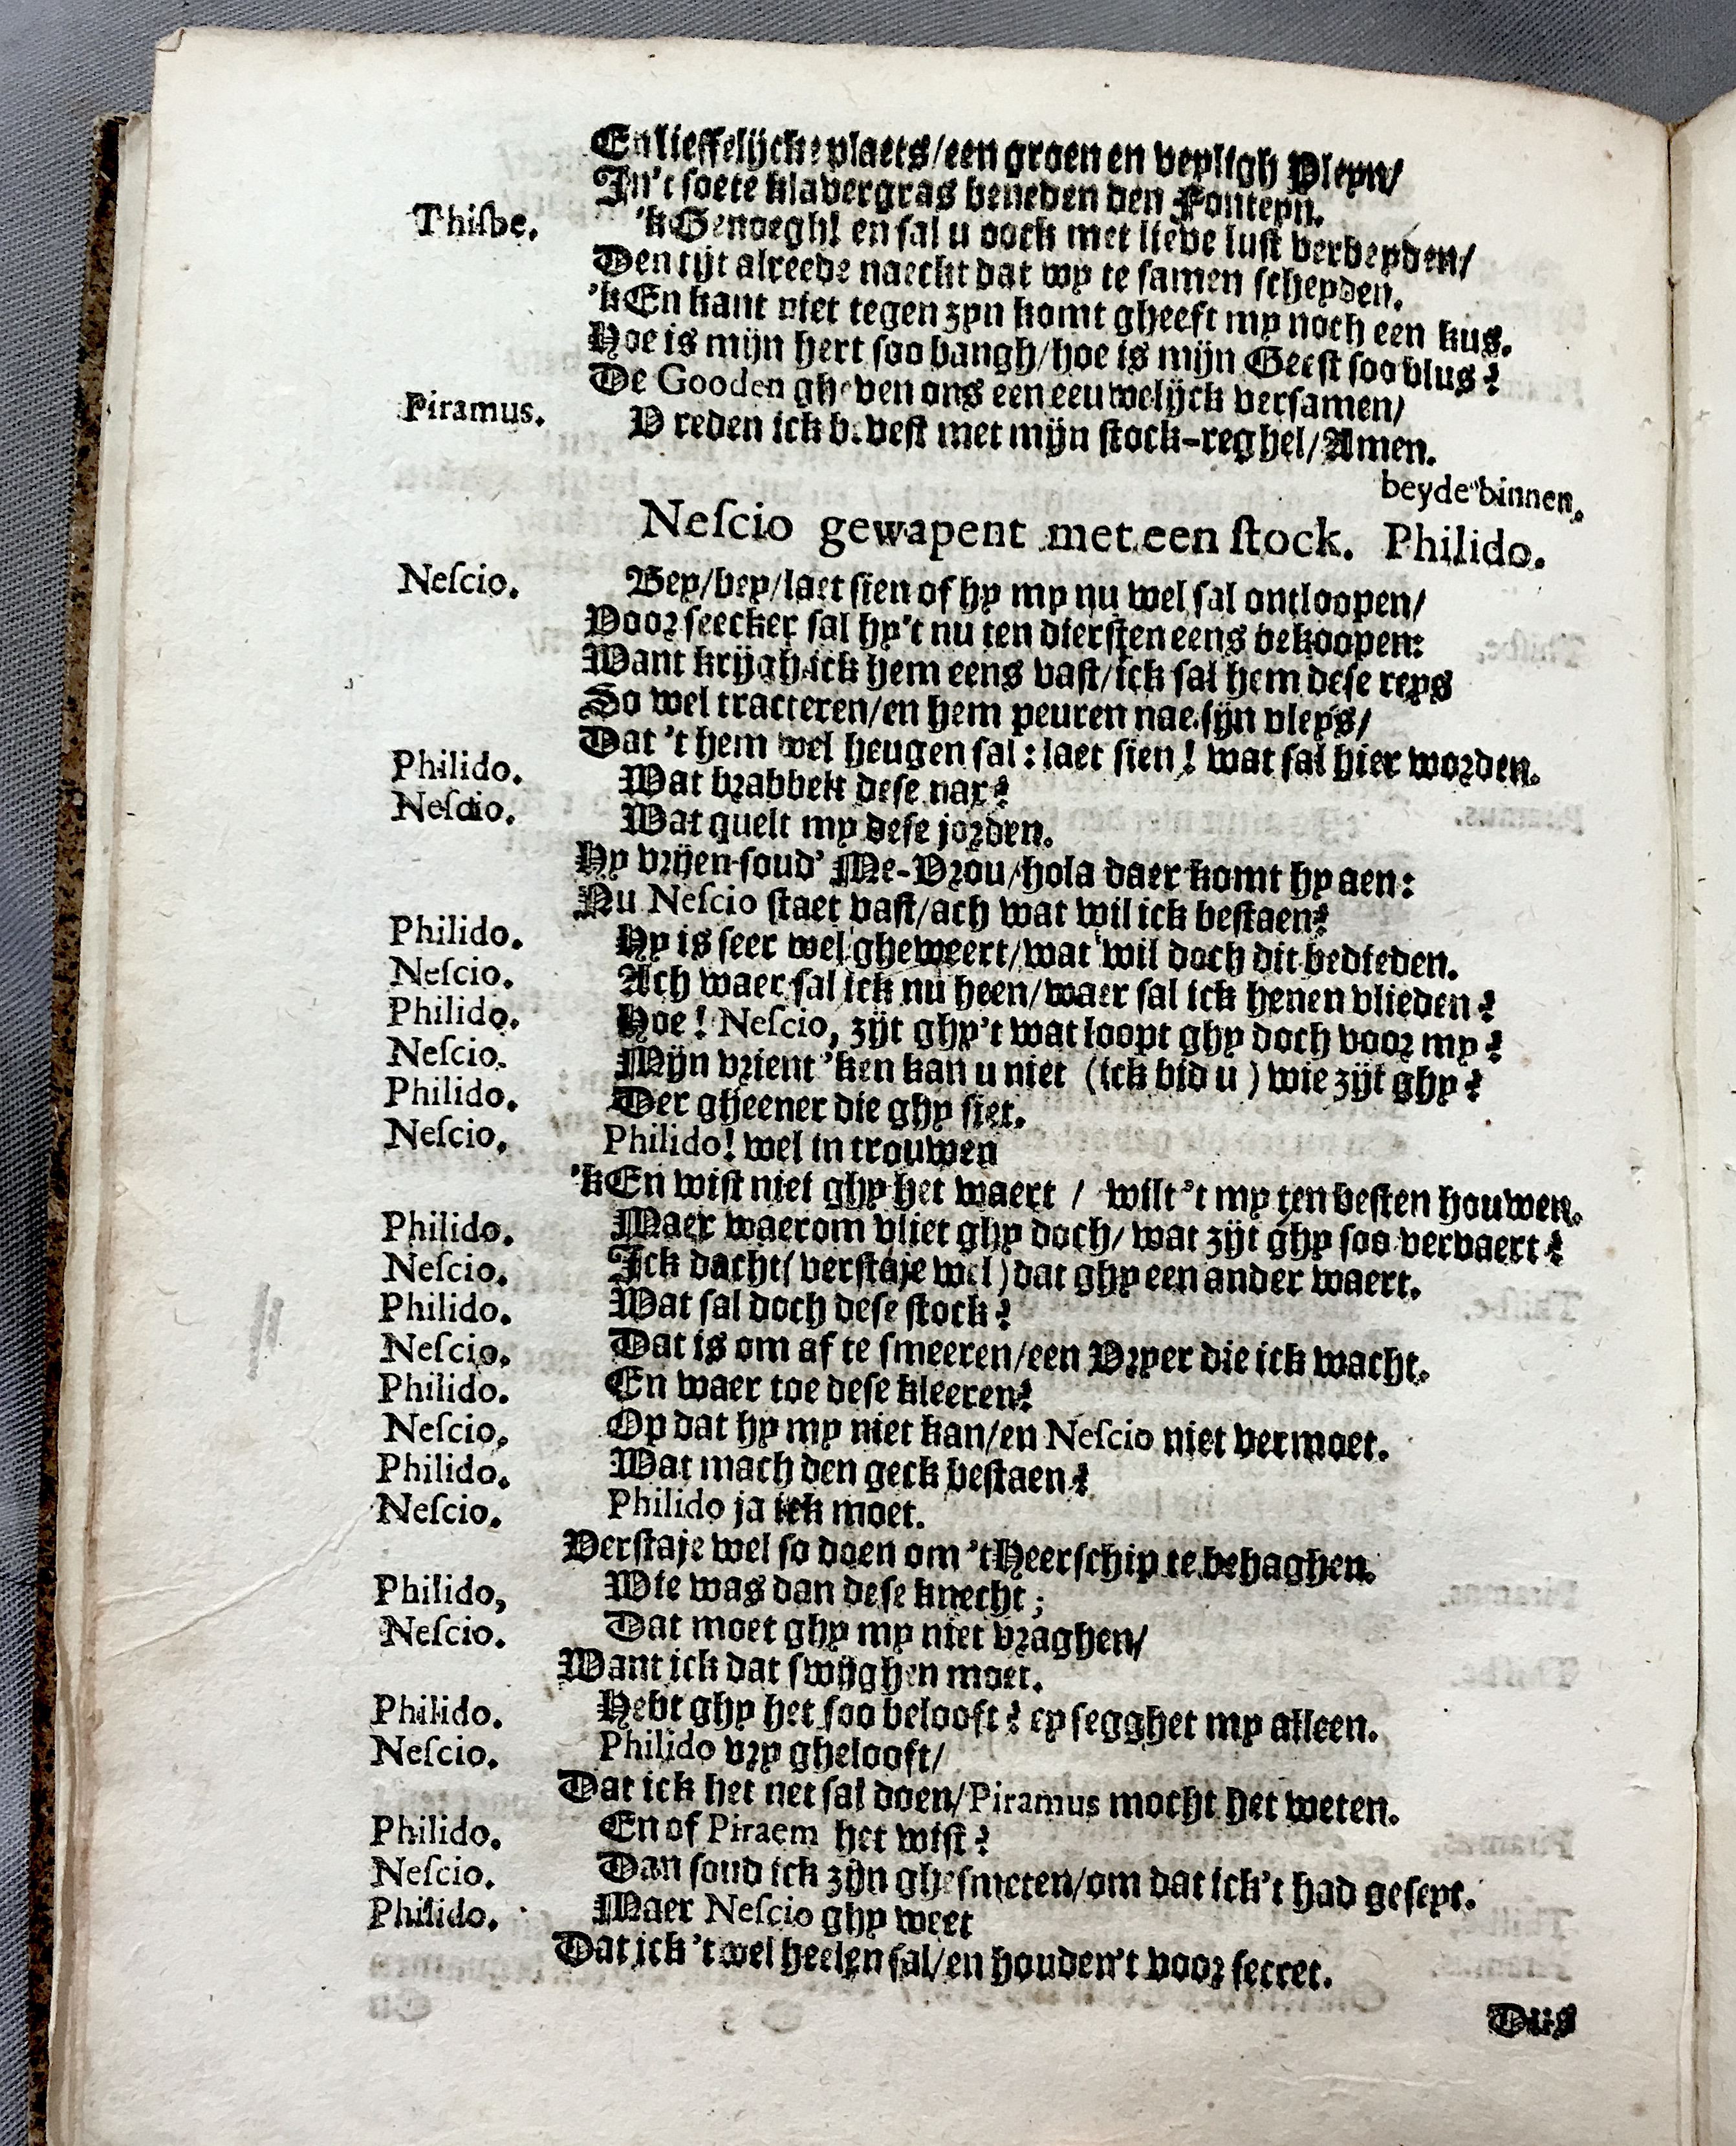 En lieffelijcke plaets/een groen en veyligh Pleyn/
In't soete klavergras beneden den Fonteyn.
Thiſbe. 'kGenoegh! en sal u oock met lieve lust verbeyden/
Den tijt alreede naeckt dat wy te samen scheyden.
'kEn kant niet tegen zyn komt gheeft my noch een kus.
Hoe is mijn hert soo bangh/hoe is mijn Geest soo blus?
De Gooden gheven ons een eeuwelijck versamen/
Piramus. V reden ick b.vest met mijn stock-reghel/Amen.
beyde binnen.
Neſcio gewapent met een ſtock. Philido.
Neſcio. Bey/bey/laet sien of hy my nu wel sal ontloopen/
Voor seecker sal hy't nu ten diersten eens bekoopen:
Want krijgh ick hem eens vast/ick sal hem dese reys
So wel tracteren/en hem peuren nae sijn vleys/
Dat 't hem wel heugen sal: laet sien! wat sal hier worden.
Philido. Wat brabbelt dese nar?
Neſcio. Wat quelt my dese jorden.
Hy vrijen soud' Me-Vrou/hola daer komt hy aen:
Nu Neſcio staet vast/ach wat wil ick bestaen?
Philido. Hy is seer wel gheweert/wat wil doch dit bedieden.
Neſcio. Ach waer sal ick nu heen/waer sal ick henen vlieden?
Philido. Hoe! Neſcio, zijt ghy't wat loopt ghy doch voor my?
Neſcio. Mijn vrient 'ken kan u niet (ick bid u) wie zijt ghy?
Philido. Der gheener die ghy siet.
Neſcio. Philido! wel in trouwen
'kEn wist niet ghy het waert / wilt 't my ten besten houwen.
Philido. Maer waerom vliet ghy doch/ wat zijt ghy soo vervaert?
Neſcio. Ick dacht( verstaje wel) dat ghy een ander waert.
Philido. Wat sal doch dese stock?
Neſcio. Dat is om af te smeeren/een Vryer die ick wacht.
Philido. En waer toe dese kleeren?
Neſcio. Op dat hy my niet kan/en Neſcio niet vermoet.
Philido. Wat mach den geck bestaen?
Neſcio. Philido ja ick moet.
Verstaje wel so doen om 'tHeerschip te behaghen.
Philido, Wie was dan dese knecht;
Neſcio. Dat moet ghy my niet vraghen/
Want ick dat swijghen moet.
Philido. Hebt ghy het soo belooft? ey segghet my alleen.
Neſcio. Philido vry ghelooft/
Dat ick het net sal doen/Piramus mocht het weten.
Philido. En of Piraem het wist?
Neſcio. Dan soud ick zijn ghesmeten/om dat ick't had geseyt.
Philido. Maer Neſcio ghy weet
Dat ick 't wel heelen sal/en houden't voor secreet.
Dus